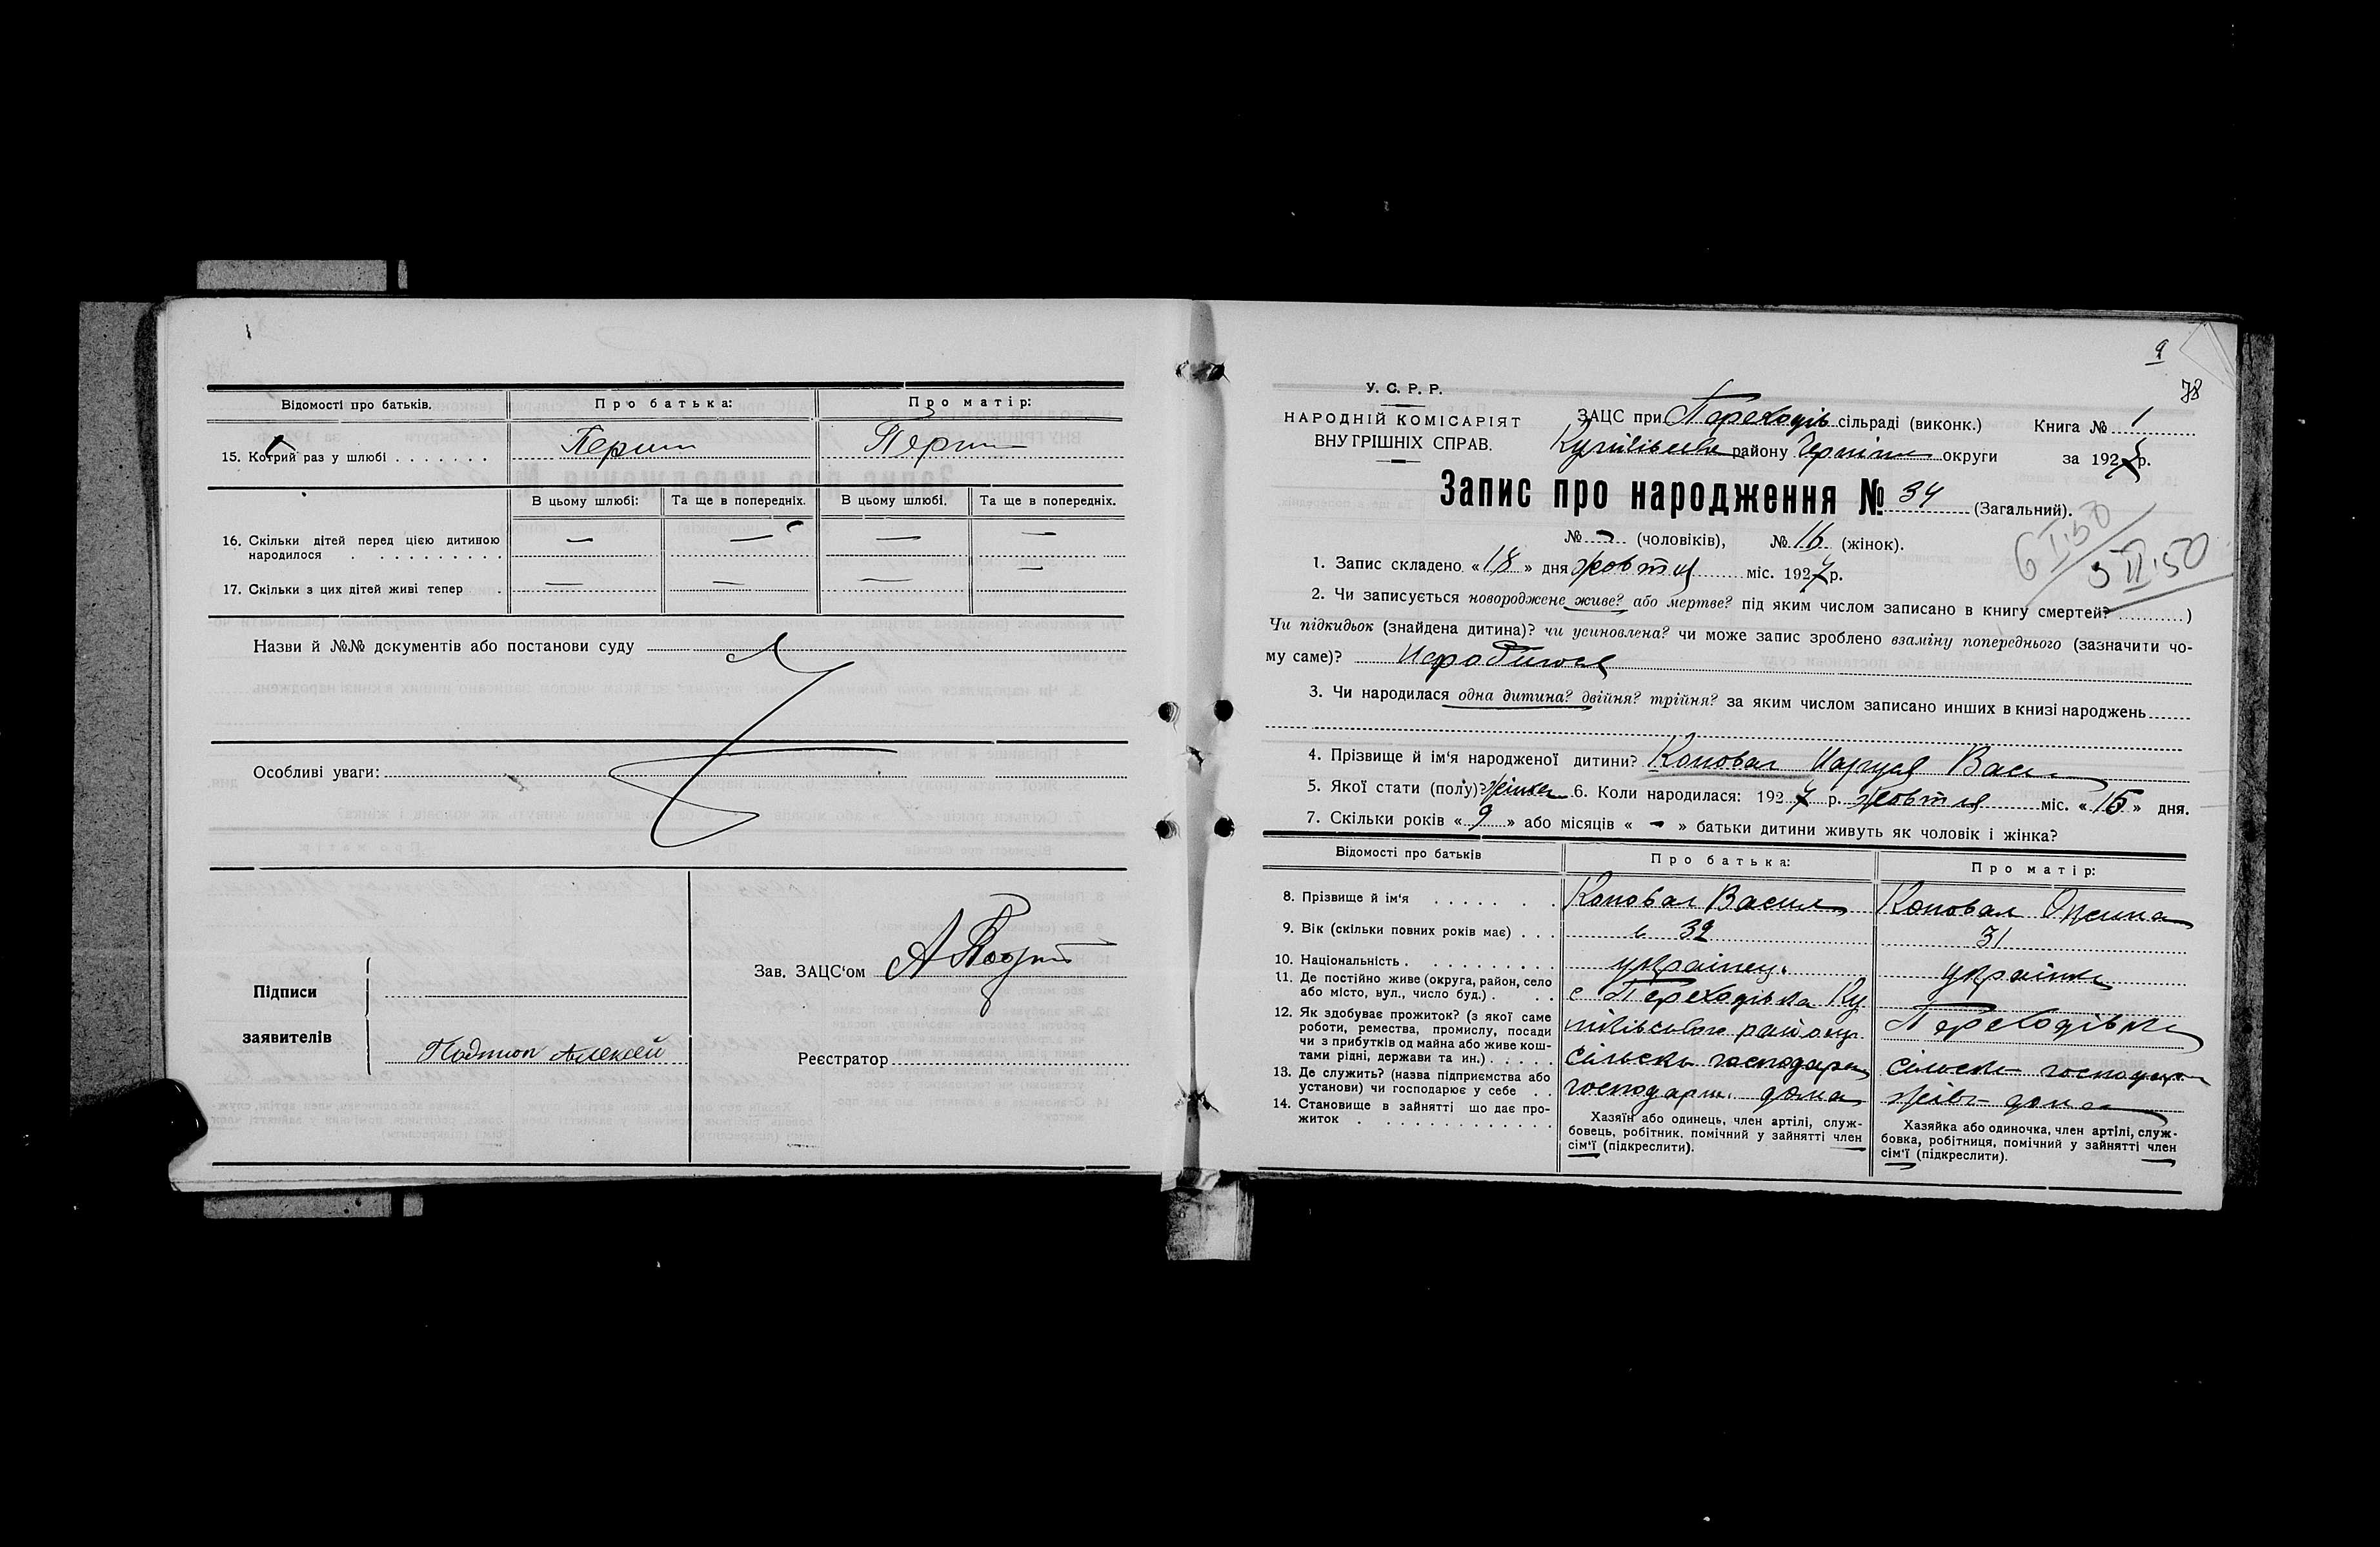 Відомості про батьків. Про батька: Про матір:
15. Котрий раз у шлюбі . . . . . . .
В цьому шлюбі: Та ще в попередніх. В цьому шлюбі. Та ще в попередніх.
16. Скільки дітей перед цією дитиною — — — —
народилося . . . . . . . . . .
17. Скільки з цих дітей живі тепер . — — — —
Назви й №№ документів або постанови суду
Особливі уваги:
Зав. ЗАЦС'ом
Підписи
заявителів
Алексей
Реєстратор
9
78
У. С. Р. Р.
НАРОДНІЙ КОМІСАРІЯТ
ВНУТРІШНІХ СПРАВ.
ЗАЦС при Переходів сільраді (виконк.) Книга № 1
району округи за 1927 р.
Запис про народження № 34 (Загальний).
№ — (чоловіків), № 16 (жінок).
6 I.50
5 II.50
1. Запис складено «18» дня жовтня міс. 1927 р.
2. Чи записується новороджене живе? або мертве? під яким числом записано в книгу смертей? )
Чи підкидьок (знайдена дитина)? чи усиновлена? чи може запис зроблено взаміну попереднього (зазначити чо-
му саме)?
3. Чи народилася одна дитина? двійня? трійня? за яким числом записано инших в книзі народжень
4. Прізвище й ім'я народженої дитини? Коновал Маруся Васи
5. Якої стати (полу)? жінка 6. Коли народилася: 1927 р. жовтня міс. «15» дня.
7. Скільки років «9» або місяців « - » батьки дитини живуть як чоловік і жінка?
Відомості про батьків Про батька: Про матір:
8. Прізвище й ім'я . . . . . . . Коновал Василь Коновал
9. Вік (скільки повних років має) . . . 32 31
10. Національність . . . . . . . . . . українец українка
11. Де постійно живе (округа, район, село с Переходівка Ку Переходівка
або місто, вул., число буд.) . . .
12. Як здобуває прожиток? (з якої саме району
роботи, ремества, промислу, посади
чи з прибутків од майна або живе кош-
тами рідні, держави та ин.) . . . . . сільськ господар
13. Де служить? (назва підприємства або дома
установи) чи господарює у себе . .
14. Становище в зайнятті що дає про-
житок . . . . . . . . . . . . . .
Хазяїн або одинець, член артілі, служ-
бовець, робітник, помічний у зайнятті член
сім'ї (підкреслити).
Хазяйка або одиночка, член артілі, служ-
бовка, робітниця, помічний у зайнятті член
сім'ї (підкреслити).